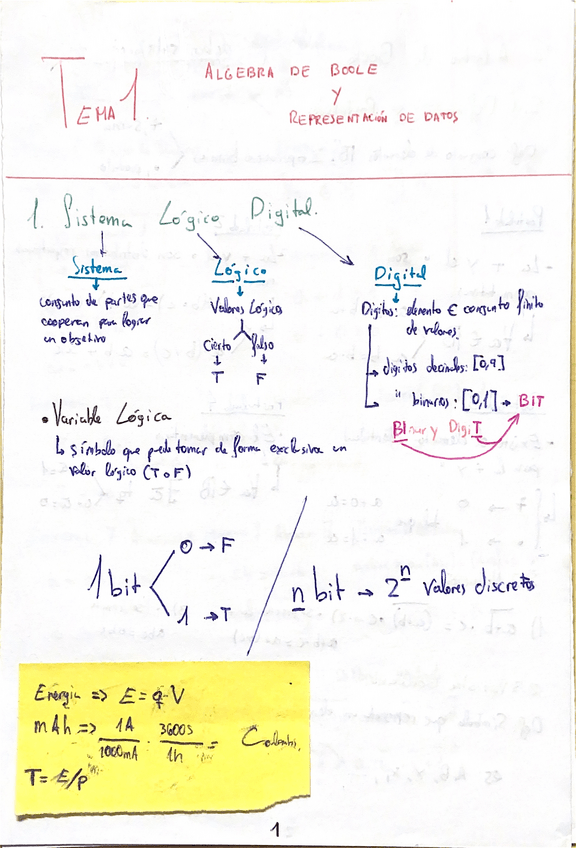 TEMA 1.
ALGEBRA DE BOOLE
Y
REPRESENTACIÓN DE DATOS
1. Sistema Lógico Digital.
Sistema
conjunto de partes que
cooperan para lograr
un objetivo
Lógico
Valores Lógicos
Cierto Falso
T F
Digital
Digitos: elemento € conjunto finito
de valores.
→ digitos decimales: [0,9]
" binarios: [0,1] → BIT
BInary DigiT
• Variable Lógica
↳ símbolo que puede tomar de forma exclusiva un
valor lógico (T o F)
1 bit
0 → F
1 → T
n bit → 2^n valores discretos
Energia => E = q·V
mAh => 1A/1000mA · 3600s/1h =
T = E/P
1